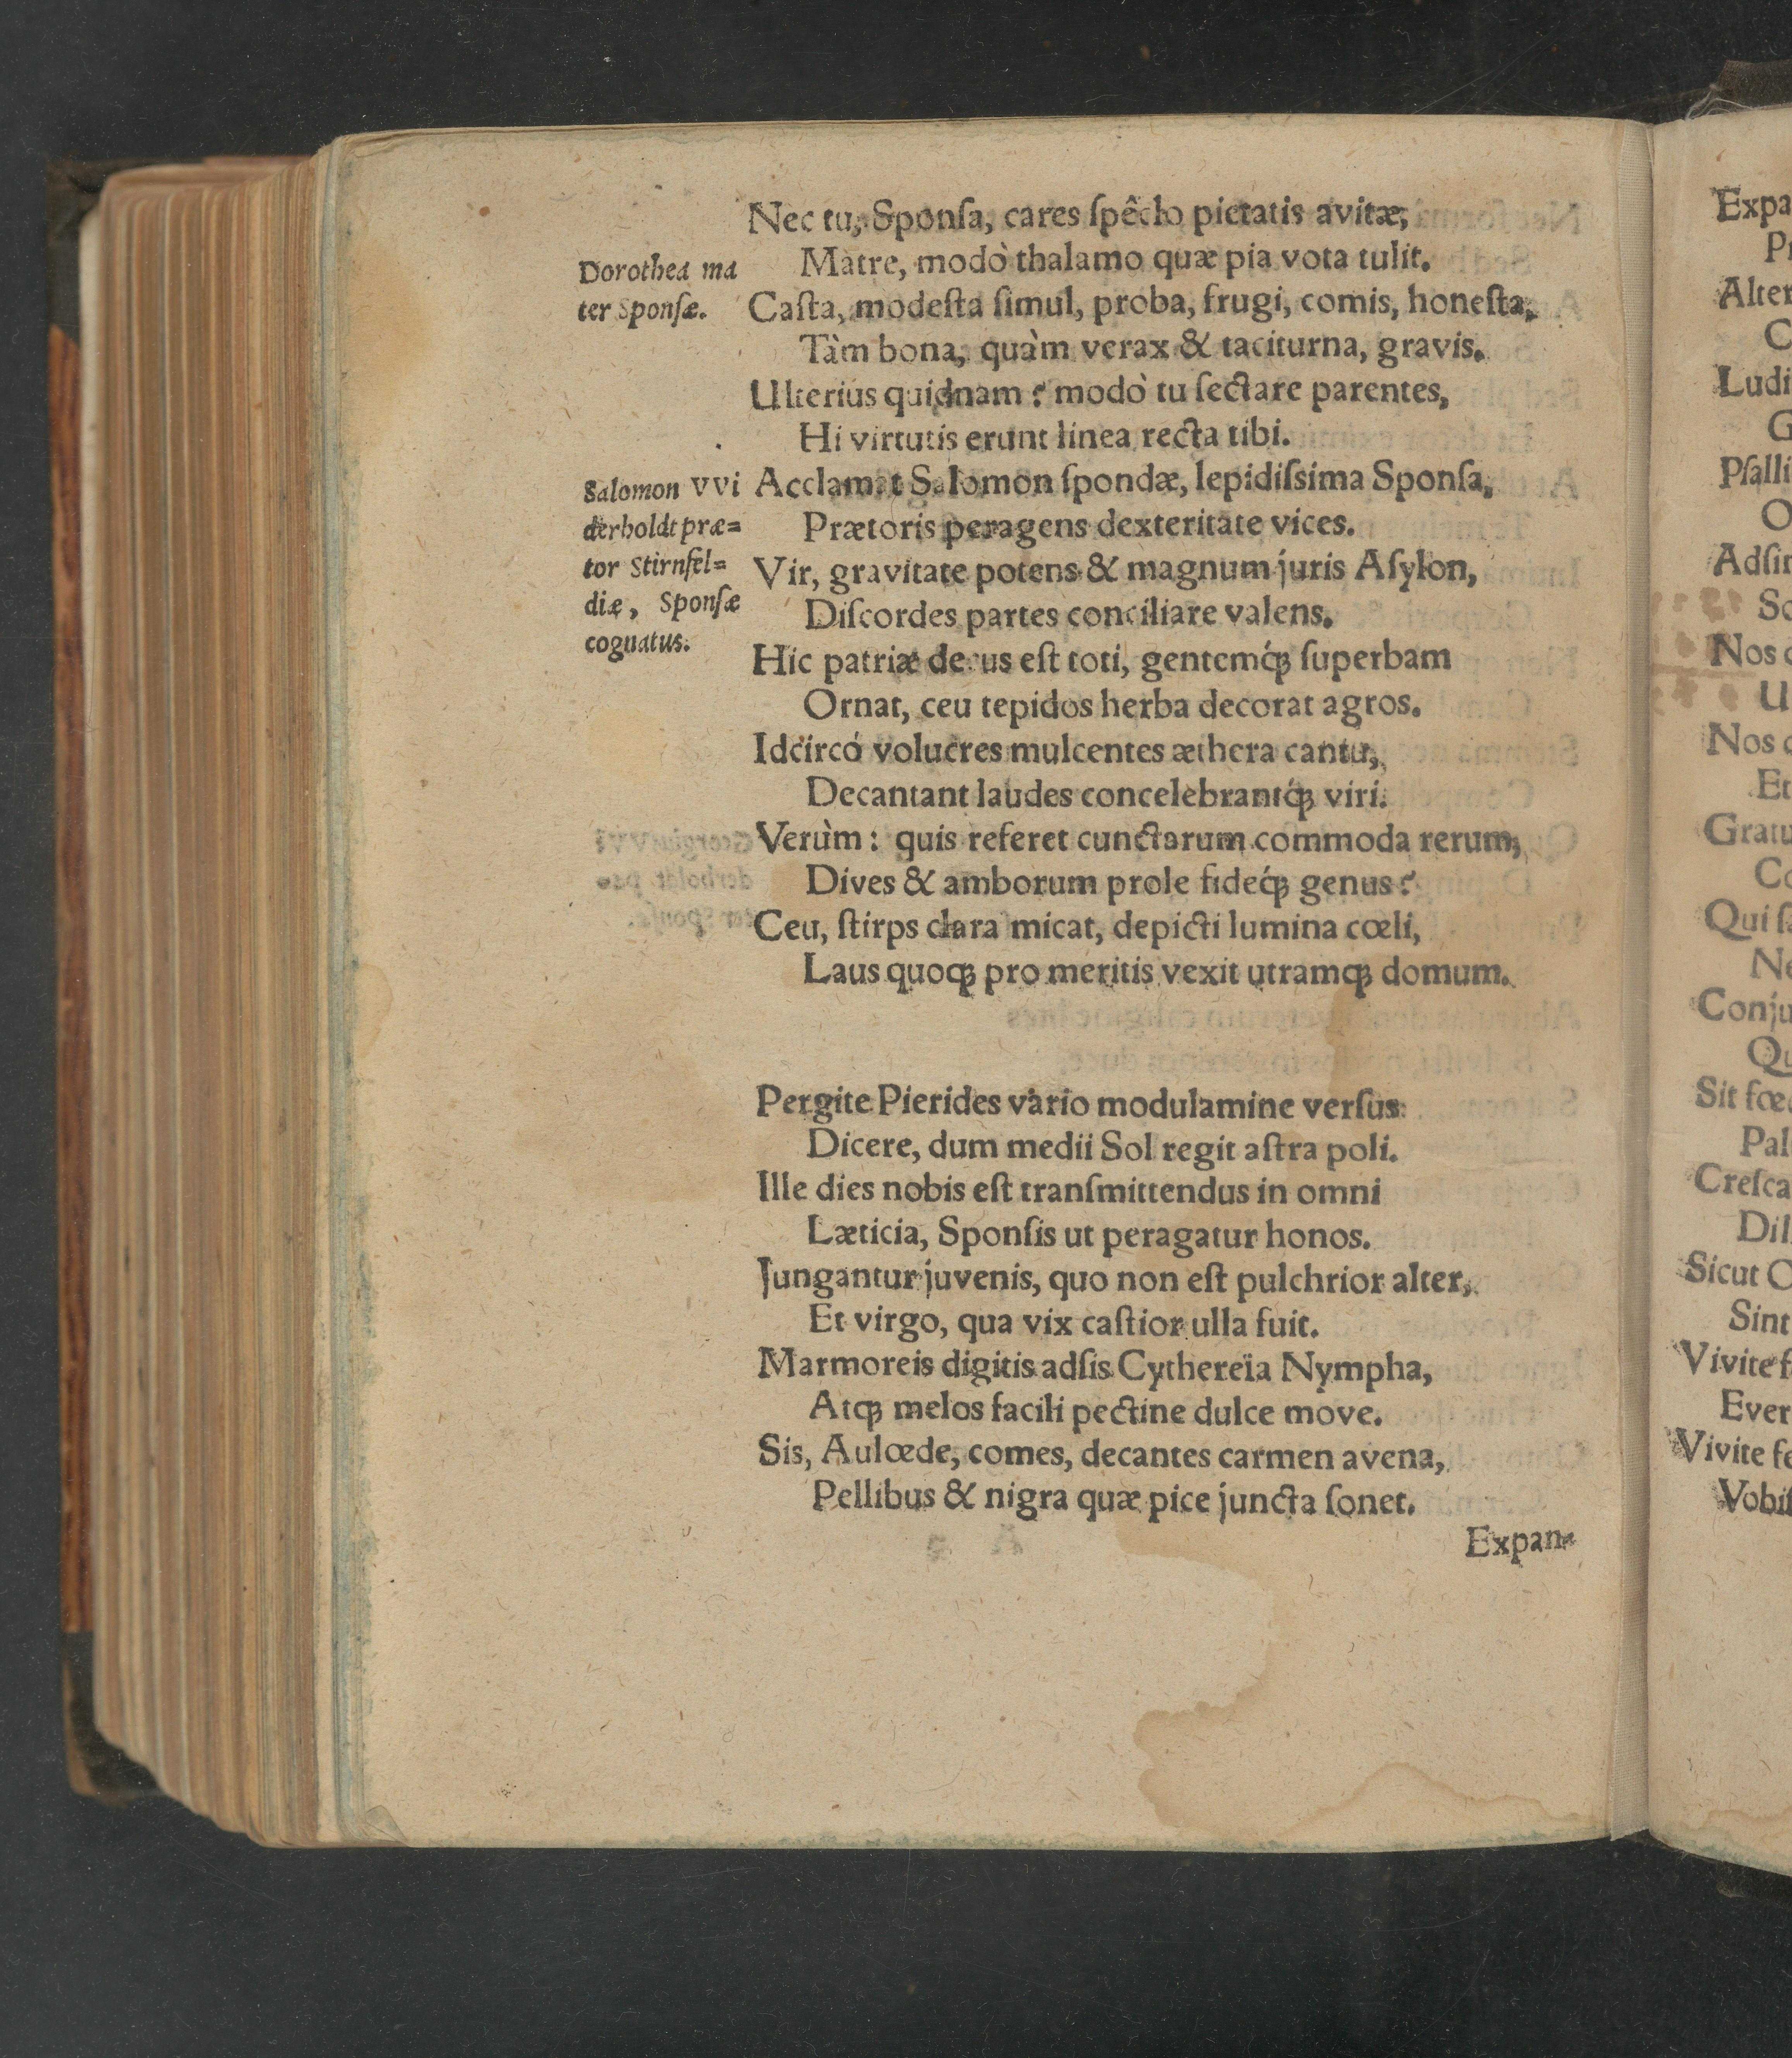 Nec tu, Sponſa, cares ſpêclo pietatis avitæ,
Matre, modò thalamo quæ pia vota tulit.
Dorothea ma
ter Sponſæ.
Caſta, modeſta ſimul, proba, frugi, comis, honeſta,
Tàm bona, quàm verax & taciturna, gravis.
Ulterius quidnam? modò tu ſectare parentes,
Hi virtutis erunt linea recta tibi.
Salomon VVi
derholdt præ=
tor Stirnfel=
diæ, Sponſæ
cognatus.
Acclamat Salomon ſpondæ, lepidiſsima Sponſa,
Prætoris peragens dexteritate vices.
Vir, gravitate potens & magnum juris Aſylon,
Diſcordes partes conciliare valens.
Hic patriæ decus eſt toti, gentemq́ꝫ ſuperbam
Ornat, ceu tepidos herba decorat agros.
Idcircó volucres mulcentes æthera cantu,
Decantant laudes concelebrantq́ꝫ viri.
Verùm: quis referet cunctarum commoda rerum,
Dives & amborum prole fideq́ꝫ genus?
Ceu, ſtirps clara micat, depicti lumina cœli,
Laus quoqꝫ pro meritis vexit utramqꝫ domum.
Pergite Pierides vario modulamine verſus
Dicere, dum medii Sol regit aſtra poli.
Ille dies nobis eſt tranſmittendus in omni
Læticia, Sponſis ut peragatur honos.
Jungantur juvenis, quo non eſt pulchrior alter,
Et virgo, qua vix caſtior ulla fuit.
Marmoreis digitis adſis Cythereïa Nympha,
Atqꝫ melos facili pectine dulce move.
Sis, Aulœde, comes, decantes carmen avena,
Pellibus & nigra quæ pice juncta ſonet.
Expan=
Expa
Alter
Ludi
Pſalli
Adſin
Nos
U
Nos
Et
Gratu
Co
Qui
Ne
Conju
Qu
Sit fœ
Pal
Creſca
Dil
Sicut
Sint
Vivite
Ever
Vivite
Vobiſ